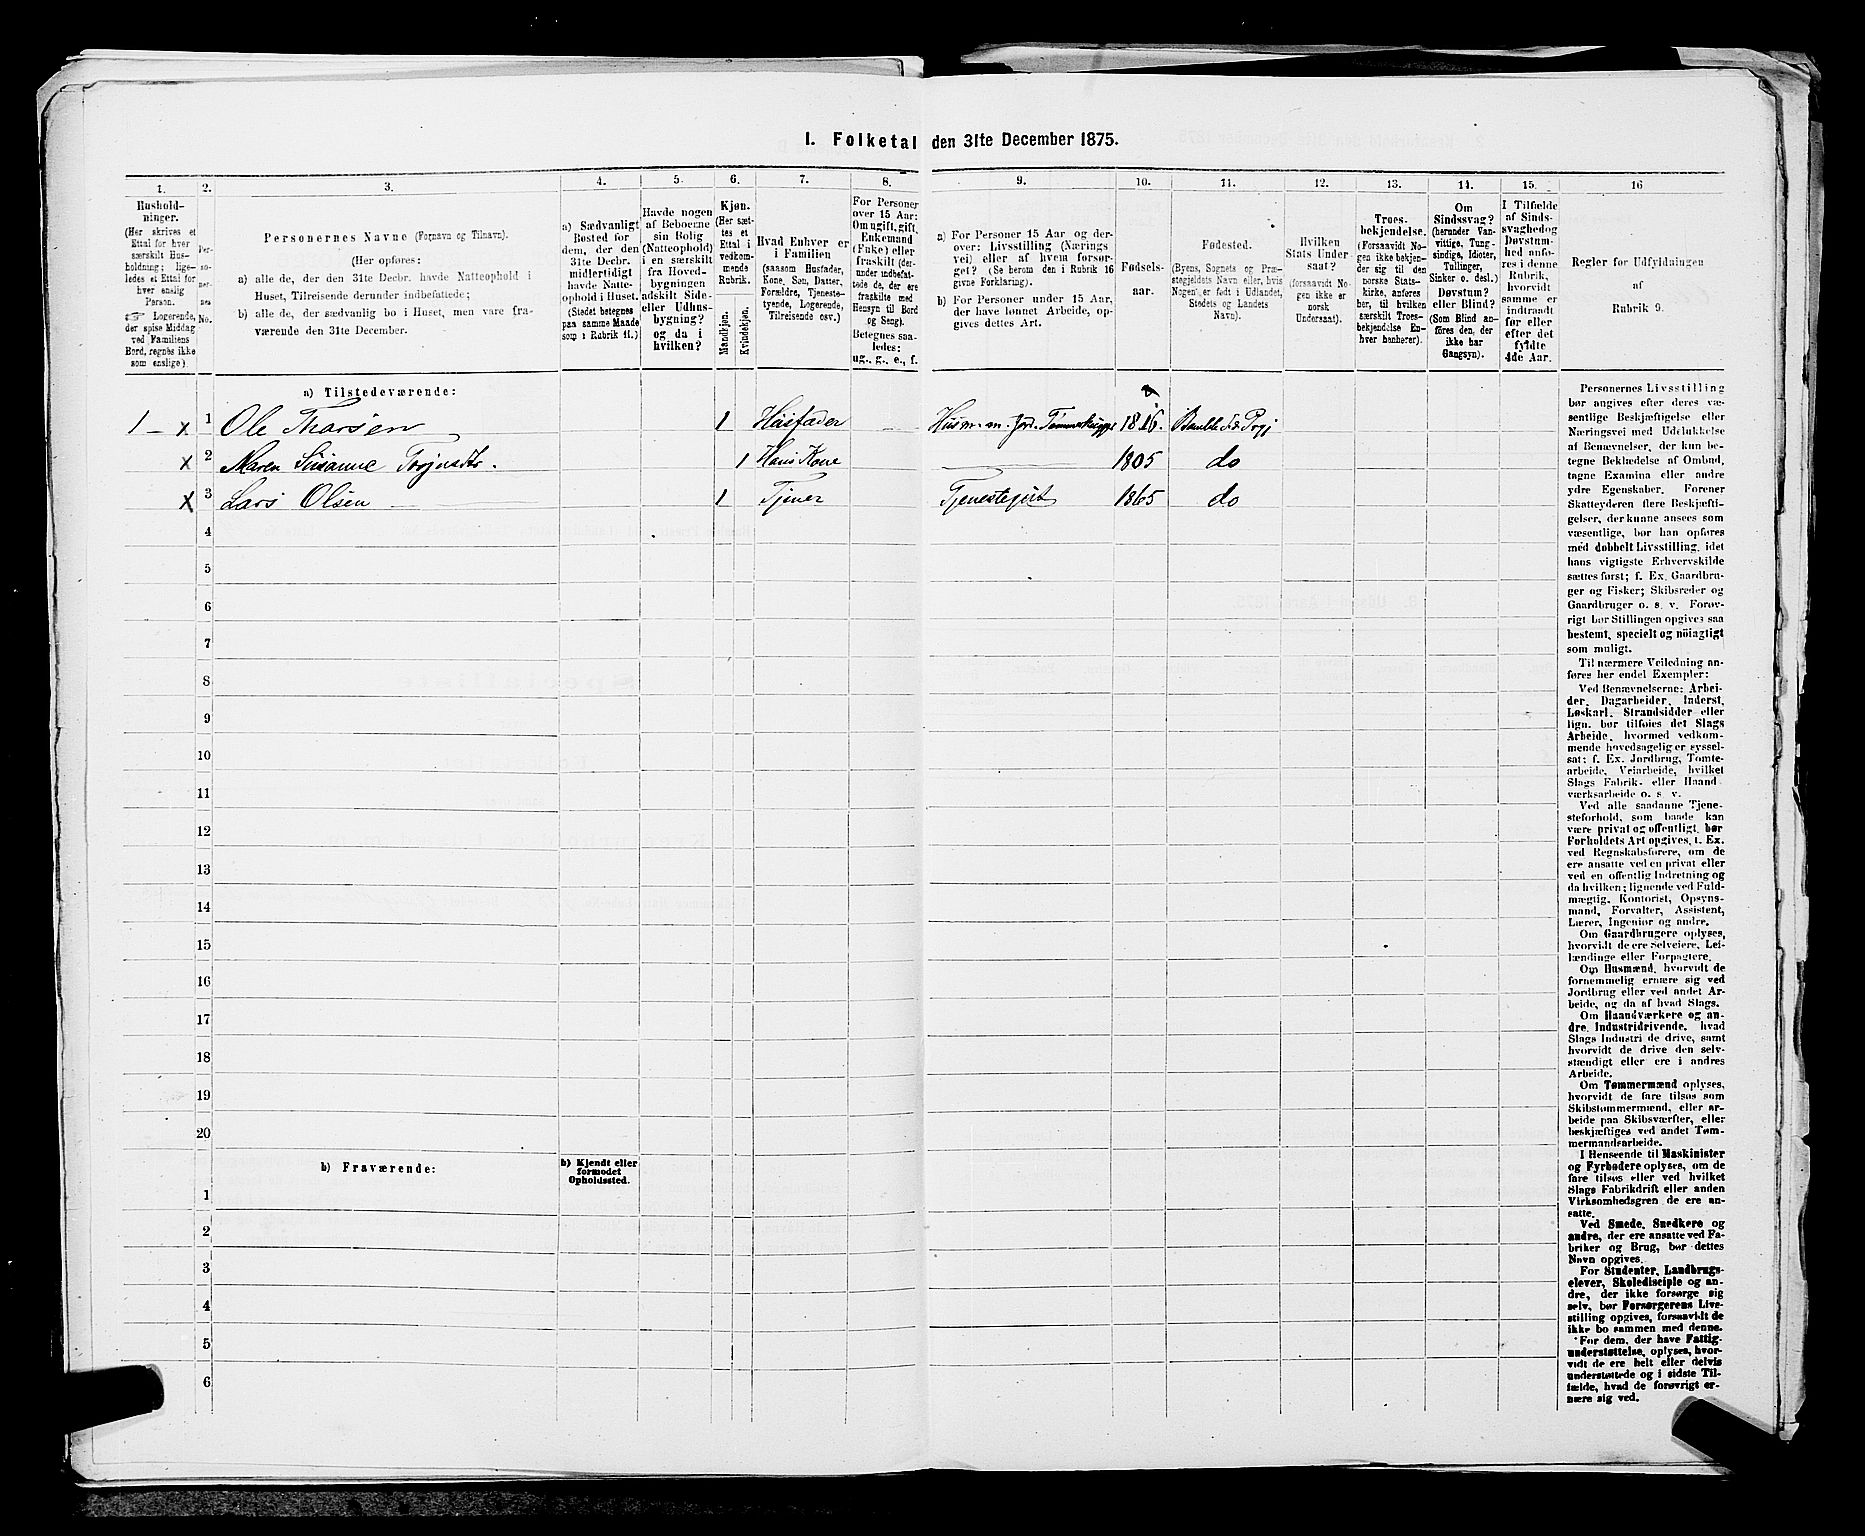 1. Folketal den 31te December 1875.
1. 2. 3. 4. 5. 6. 7. 8. 9. 10. 11. 12. 13. 14. 15. 16
Husholdninger.
(Her skrives et
Ettal for hver
særskilt Husholdning; ligeledes et Ettal for
hver enslig
Person.
☞ Logerende,
der spise Middag
ved Familiens
Bord, regnes ikke
som enslige).
Personernes No.
Personernes Navne (Fornavn og Tilnavn).
(Her opføres:
a) alle de, der den 31te Decbr. havde Natteophold i
Huset, Tilreisende derunder indbefattede;
b) alle de, der sædvanlig bo i Huset, men vare fraværende den 31te December.
a) Sædvanligt
Bosted for
dem, der den
31te Decbr.
midlertidigt
havde Natteophold i Huset.
(Stedet betegnes
paa samme Maade
som i Rubrik 11.)
Havde nogen
af Beboerne
sin Bolig
(Natteophold)
i en særskilt
fra Hovedbygningen
adskilt Side-
eller Udhusbygning?
og da i
hvilken?
Kjøn.
(Her sættes et
Ettal i
vedkommende
Rubrik.
Mandkjøn.
Kvindekjøn.
Hvad Enhver er
i Familien
(saasom Husfader,
Kone, Søn, Datter,
Forældre, Tjenestetyende, Logerende,
Tilreisende osv.)
For Personer
over 15 Aar:
Om ugift, gift,
Enkemand
(Enke) eller
fraskilt (derunder indbefattede de, der ere
fraskilte med
Hensyn til Bord
og Seng).
Betegnes saaledes:
ug., g., e., f.
a) For Personer 15 Aar og derover: Livsstilling (Næringsvei) eller af hvem forsørget? (Se herom den i Rubrik 16
givne Forklaring).
b) For Personer under 15 Aar,
der have lønnet Arbeide, opgives dettes Art.
Fødselsaar.
Fødested.
(Byens, Sognets og Præstegjeldets Navn eller, hvis
Nogen er født i Udlandet,
Stedets og Landets
Navn).
Hvilken
Stats Undersaat?
(forsaavidt Nogen ikke er
norsk
Undersaat).
Troesbekjendelse.
(Forsaavidt Nogen ikke bekjender sig til den
norske Statskirke, anføres
her, til hvilken
særskilt Troesbekjendelse Enhver henhører).
Om
Sindssvag?
(herunder Vanvittige, Tungsindige, Idioter,
Tullinger,
Sinker o. desl.)
Døvstum?
eller Blind?
(Som Blind anføres den, der
ikke har
Gangsyn).
I Tilfælde
af Sindssvaghed og
Døvstumhed anføres i denne
Rubrik,
hvorvidt
samme er
indtraadt
før eller
efter det
fyldte
4de Aar.
Regler for Udfyldningen
af
Rubrik 9.
a) Tilstedeværende:
1 – x 1 Ole Thorsen 1 Husfader Husm. m. Jord. 1816. Bamble
x 2 Maren Susanne 1 Hans Kone 1805 do
x 3 Lars Olsen 1 Tjener Tjenestegut 1865 do
4
5
6
7
8
9
10
11
12
13
14
15
16
17
18
19
20
b) Fraværende:
b) Kjendt eller
formodet
Opholdssted.
1
2
3
4
5
6
Personernes Livsstilling
bør angives efter deres væsentlige Beskjæftigelse eller
Næringsvei med Udelukkelse
af Benævnelser, der kun betegne Beklædelse af Ombud,
tagne Examina eller andre
ydre Egenskaber. Forener
Skatteyderen flere Beskjæftigelser, der kunne ansees som
væsentlige, bør han opføres
med dobbelt Livsstilling, idet
hans vigtigste Erhvervskilde
sættes først; f. Ex. Gaardbruger og Fisker; Skibsreder og
Gaardbruger o. s. v. Forøvrigt bør Stillingen opgives saa
bestemt, specielt og nöiagtigt
som muligt.
Til nærmere Veiledning anføres her endel Exempler:
Ved Benævnelserne: Arbeider, Dagarbeider, Inderst,
Løskarl, Strandsidder eller
lign. bør tilføies det Slags
Arbeide, hvormed vedkommende hovedsagelig er sysselsat; f. Ex. Jordbrug, Tomtearbeide, Veiarbeide, hvilket
Slags Fabrik- eller Haandværksarbeide o. s. v.
Ved alle saadanne Tjenesteforhold, som baade kan
være privat og offentligt, bør
Forholdets Art opgives, t. Ex.
ved Regnskabsførere, om de
ere ansatte ved en privat eller
ved en offentlig Indretning og
da hvilken; lignende ved Fuldmægtig, Kontorist, Opsynsmand, Forvalter, Assistent,
Lærer, Ingeniør og andre.
Om Gaardbrugere oplyses,
hvorvidt de ere Selveiere, Leilændinge eller Forpagtere.
Om Husmænd, hvorvidt de
fornemmelig ernære sig ved
Jordbrug eller ved andet Arbeide, og da af hvad Slags.
Om Haandværkere og andre Industridrivende, hvad
Slags Industri de drive, samt
hvorvidt de drive den selvstændigt eller ere i andres
Arbeide.
Om Tømmermænd oplyses,
hvorvidt de fare tilsøs som
Skibstømmermænd, eller arbeide paa Skibsværfter, eller
beskjæftiges ved andet Tømmermandsarbeide.
I Henseende til Maskinister
og Fyrbødere oplyses, om de
fare tilsøs eller ved hvilket
Slags Fabrikdrift eller anden
Virksomhedsgren de ere ansatte.
Ved Smede, Snedkere og
andre, der ere ansatte ved Fabriker og Brug, bør dettes
Navn opgives.
For Studenter, Landbrugselever, Skoledisciple og andre, der ikke forsørge sig
selv, bør Forsørgerens Livsstilling opgives, forsaavidt de
ikke bo sammen med denne.
For dem, der have Fattigunderstøttelse, oplyses, hvorvidt de ere helt eller delvis
understøttede og i sidste Tilfælde, hvad de forøvrigt ernære sig ved.